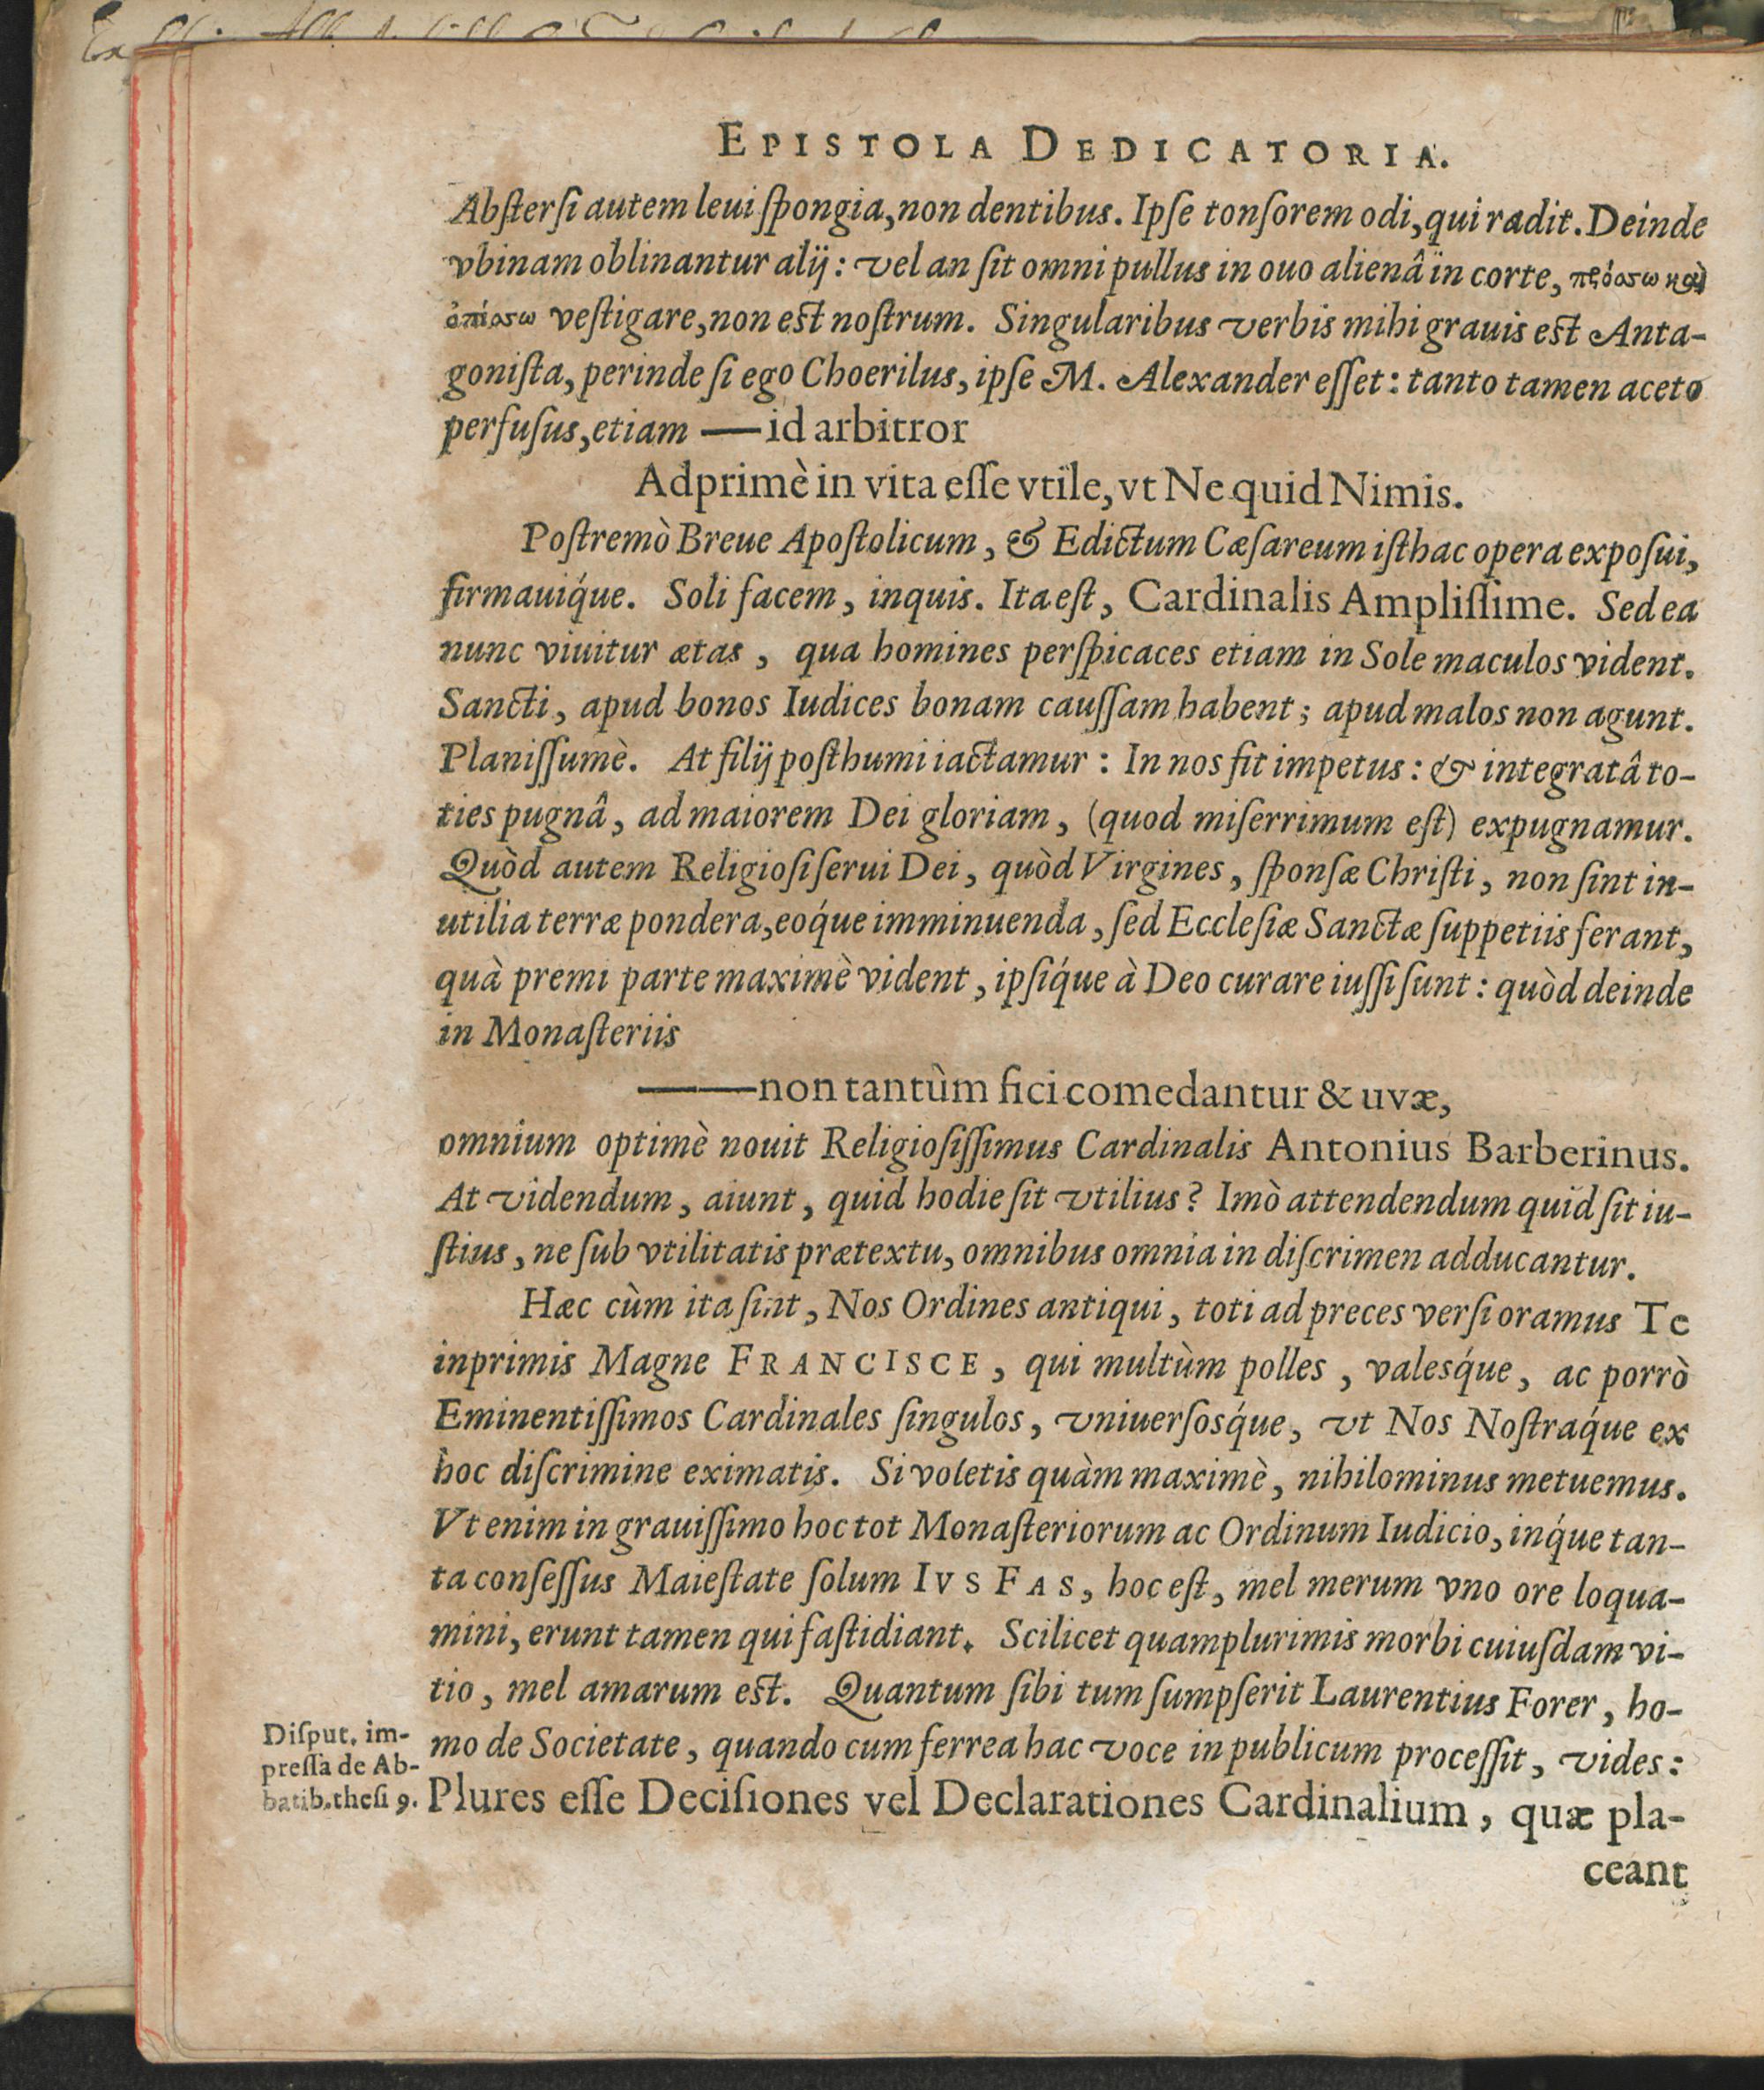 EPISTOLA DEDICATORIA.
Abſterſi autem leui ſpongia, non dentibus. Ipſe tonſorem odi, qui radit. Deinde
vbinam oblinantur alij: vel an ſit omni pullus in ouo alienâ in corte, πρόσω καὶ
ὀπίσω veſtigare, non eſt noſtrum. Singularibus verbis mihi grauis eſt Anta-
goniſta, perinde ſi ego Choerilus, ipſe M. Alexander eſſet: tanto tamen aceto
perfuſus, etiam —id arbitror
Adprimè in vita eſſe vtile, vt Ne quid Nimis.
Poſtremò Breue Apoſtolicum, & Edictum Cæſareum iſthac opera expoſui,
firmauiq́ue. Soli facem, inquis. Ita eſt, Cardinalis Ampliſſime. Sed ea
nunc viuitur ætas, qua homines perſpicaces etiam in Sole maculos vident.
Sancti, apud bonos Iudices bonam cauſſam habent; apud malos non agunt.
Planiſſumè. At filij poſthumi iactamur: In nos fit impetus: & integratâ to-
ties pugnâ, ad maiorem Dei gloriam, (quod miſerrimum eſt) expugnamur.
Quòd autem Religioſi ſerui Dei, quòd Virgines, ſponſæ Chriſti, non ſint in-
utilia terræ pondera, eoq́ue imminuenda, ſed Eccleſiæ Sanctæ ſuppetiis ferant,
quà premi parte maximè vident, ipſiq́ue à Deo curare iuſſi ſunt: quòd deinde
in Monaſteriis
——non tantùm fici comedantur & uvæ,
omnium optimè nouit Religioſiſſimus Cardinalis Antonius Barberinus.
At videndum, aiunt, quid hodie ſit vtilius? Imò attendendum quid ſit iu-
ſtius, ne ſub vtilitatis prætextu, omnibus omnia in diſcrimen adducantur.
Hæc cùm ita ſint, Nos Ordines antiqui, toti ad preces verſi oramus Te
inprimis Magne FRANCISCE, qui multùm polles, valesq́ue, ac porrò
Eminentiſſimos Cardinales ſingulos, vniuerſosq́ue, vt Nos Noſtraq́ue ex
hoc diſcrimine eximatis. Si voletis quàm maximè, nihilominus metuemus.
Vt enim in grauiſſimo hoc tot Monaſteriorum ac Ordinum Iudicio, inq́ue tan-
ta conſeſſus Maieſtate ſolum IVS FAS, hoc eſt, mel merum vno ore loqua-
mini, erunt tamen qui faſtidiant. Scilicet quamplurimis morbi cuiuſdam vi-
tio, mel amarum eſt. Quantum ſibi tum ſumpſerit Laurentius Forer, ho-
mo de Societate, quando cum ferrea hac voce in publicum proceſſit, vides:
Diſput. im-
preſſa de Ab-
batib. theſi 9.
Plures eſſe Deciſiones vel Declarationes Cardinalium, quæ pla-
ceant